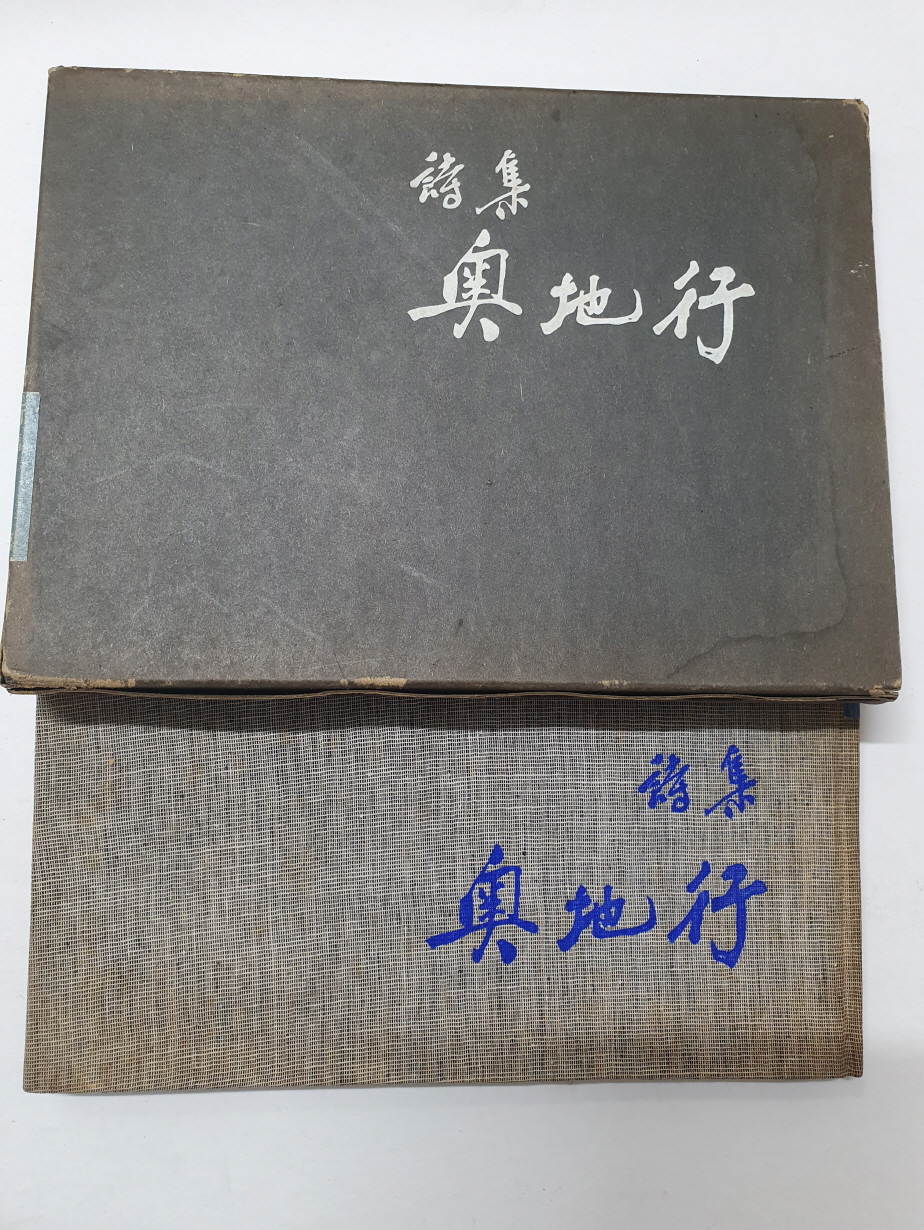 詩集
奥地行
詩集
奥地行